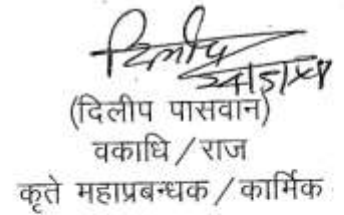 (दिलीप पासवान)
वकाधि / राज
कृते महाप्रबन्धक / कार्मिक